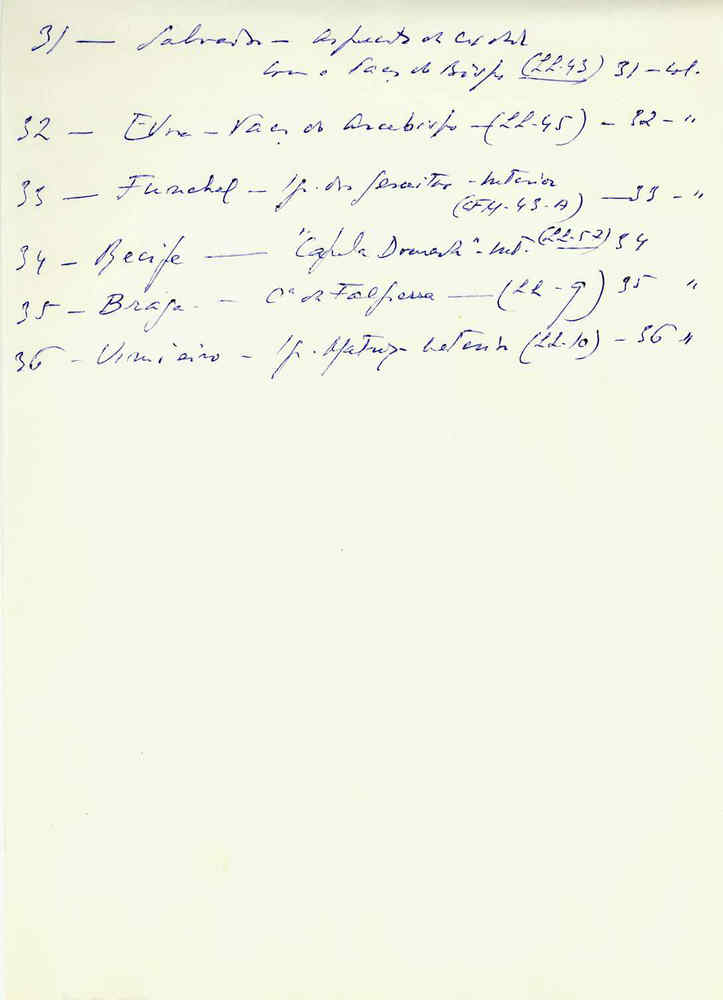 31 — Salvador — Aspecto da Cidade
com o Paço do Bispo (LL-43) 31 — col.
32 — Evora — Paço do Arcebispo — (LL-45) — 32 — "
33 — Funchal — Ig. dos Jesuitas — Interior
(CFM-43-A) — 33 — "
34 — Recife — "Capela Dourada" — Int. (LL-57) 34
35 — Braga — Cª da Falperra — (LL-9) 35 "
36 — Vimieiro — Ig. Matriz — Interior (LL-10) — 36 "